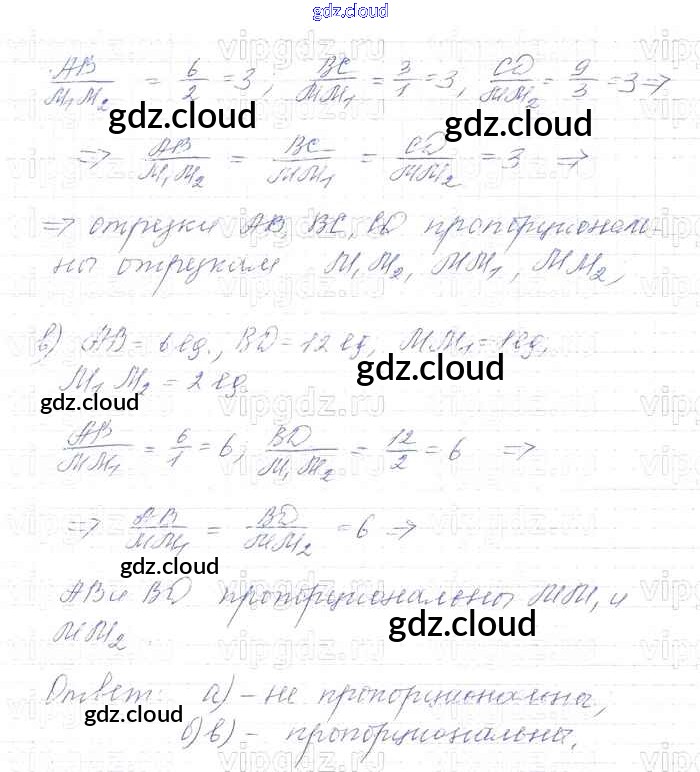 gdz.cloud
AB/M₁M₂ = 6/2 = 3; BC/MM₁ = 3/1 = 3, CD/MM₂ = 9/3 = 3 ⇒
gdz.cloud gdz.cloud
⇒ AB/M₁M₂ = BC/MM₁ = CD/MM₂ = 3 ⇒
⇒ отрезки AB, BC, CD пропорциональ-
ны отрезкам M₁M₂, MM₁, MM₂,
в) AB = 6 ед., BD = 12 ед, MM₁ = 1 ед,
gdz.cloud
M₁M₂ = 2 ед.
gdz.cloud
AB/MM₁ = 6/1 = 6, BD/M₁M₂ = 12/2 = 6 ⇒
⇒ AB/MM₁ = BD/MM₂ = 6 ⇒
gdz.cloud
AB и BD пропорциональны MM₁ и
MM₂.
gdz.cloud
Ответ: а) - не пропорциональны,
gdz.cloud
б) в) - пропорциональны.